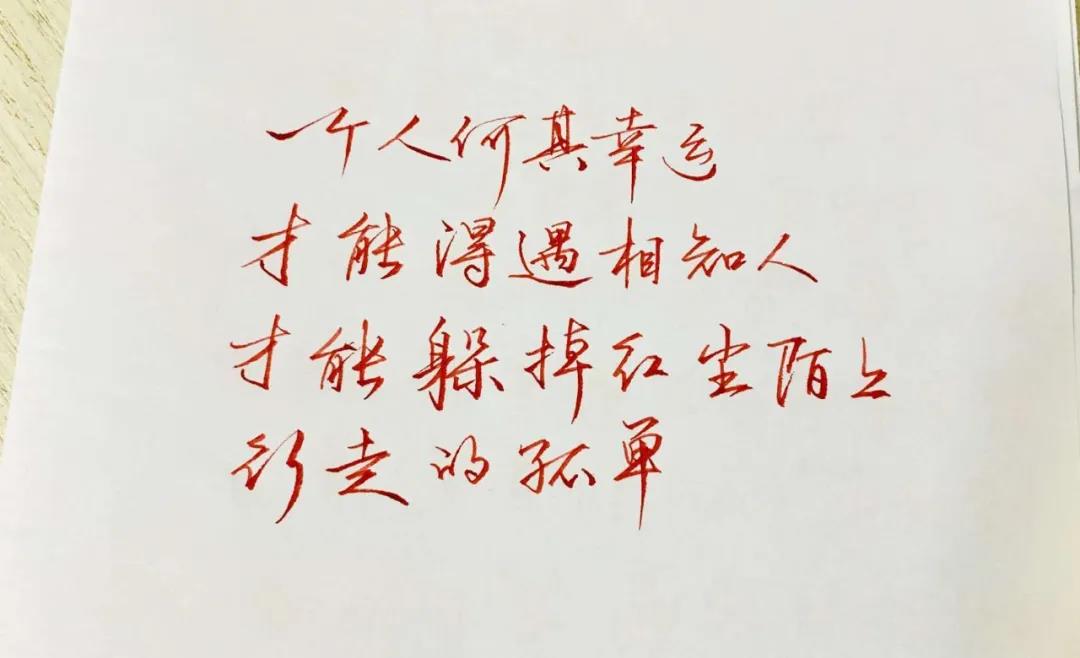 一个人何其幸运
才能得遇相知人
才能躲掉红尘陌上
行走的孤单